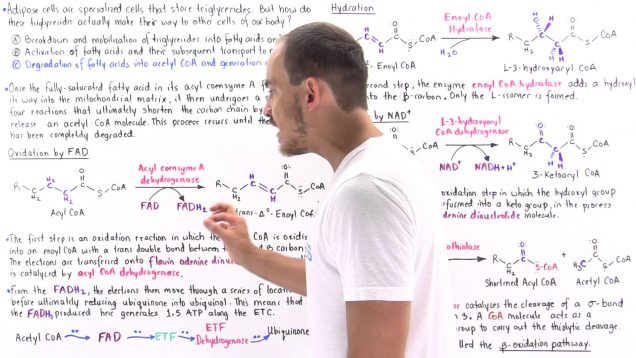 •Adipose cells are specialized cells that store triglycerides. But how do
these triglycerides actually make their way to other cells of our body?
Ⓐ Breakdown and mobilization of triglycerides into fatty acids and
Ⓑ Activation of fatty acids and their subsequent transport to
Ⓒ Degradation of fatty acids into acetyl CoA and generation
•Once the fully-saturated fatty acid in its acyl coenzyme A
its way into the mitochondrial matrix, it then undergoes a
four reactions that ultimately shorten the carbon chain by
release an acetyl-CoA molecule. This process occurs until the
has been completely degraded.
Oxidation by FAD
Acyl coenzyme A
dehydrogenase
R H₂ S CoA
FAD FADH₂
Acyl CoA
trans-Δ²-Enoyl CoA
•The first step is an oxidation reaction in which the CoA is
into an enoyl CoA with a trans double bond between B carbons
The electrons are transferred onto flavin adenine
is catalyzed by acyl CoA dehydrogenase.
•From the FADH₂, the electrons then move through a series of
before ultimately reducing ubiquinone into ubiquinol. This means that
the FADH₂ produced here generates 1.5 ATP along the ETC.
Acetyl CoA FAD ETF ETF Dehydrogenase Ubiquinone
Hydration
Enoyl CoA
Hydratase
H₂O
S CoA
-Enoyl CoA
L-3-hydroxyacyl CoA
step, the enzyme enoyl CoA hydratase adds a
into the β-carbon. Only the L-isomer is formed.
by NAD⁺
L-3-hydroxyacyl
CoA dehydrogenase
NAD⁺ NADH+H⁺
CoA
3-Ketoacyl CoA
oxidation step in which the hydroxyl group
into a keto group, in the process
adenine dinucleotide molecule.
thiolase
S-CoA H₃C S-CoA
Shortened Acyl CoA Acetyl CoA
catalyzes the cleavage of a σ-bond
3. A CoA molecule acts as a
group to carry out the thiolytic cleavage.
called the β-oxidation pathway.